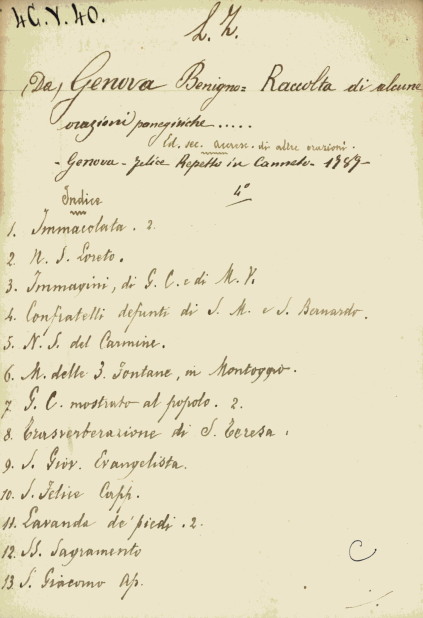 4G.V.40.
L. Z.
(Da) Genova Benigno = Raccolta di alcune
orazioni panegiriche.....
Ed. sec. accresc. di altre orazioni.
- Genova - Felice Repetto in Canneto - 1787 -
4º
Indice
1. Immacolata. 2.
2. N. S. Loreto.
3. Immagini, di G. C. e di M. V.
4. Confratelli defunti di S. M. e S. Bernardo.
5. N. S. del Carmine.
6. M. delle 3. Fontane, in Montoggio.
7. G. C. mostrato al popolo. 2.
8. Trasverberazione di S. Teresa.
9. S. Giov. Evangelista.
10. S. Felice Capp.
11. Lavanda de' piedi. 2.
12. SS. Sagramento
13. S. Giacomo Ap.